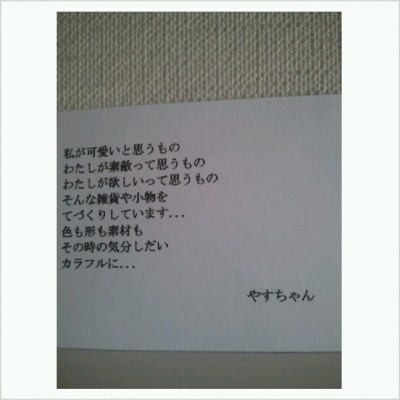 私が可愛いと思うもの
わたしが素敵って思うもの
わたしが欲しいって思うもの
そんな雑貨や小物を
てづくりしています...
色も形も素材も
その時の気分しだい
カラフルに...
やすちゃん